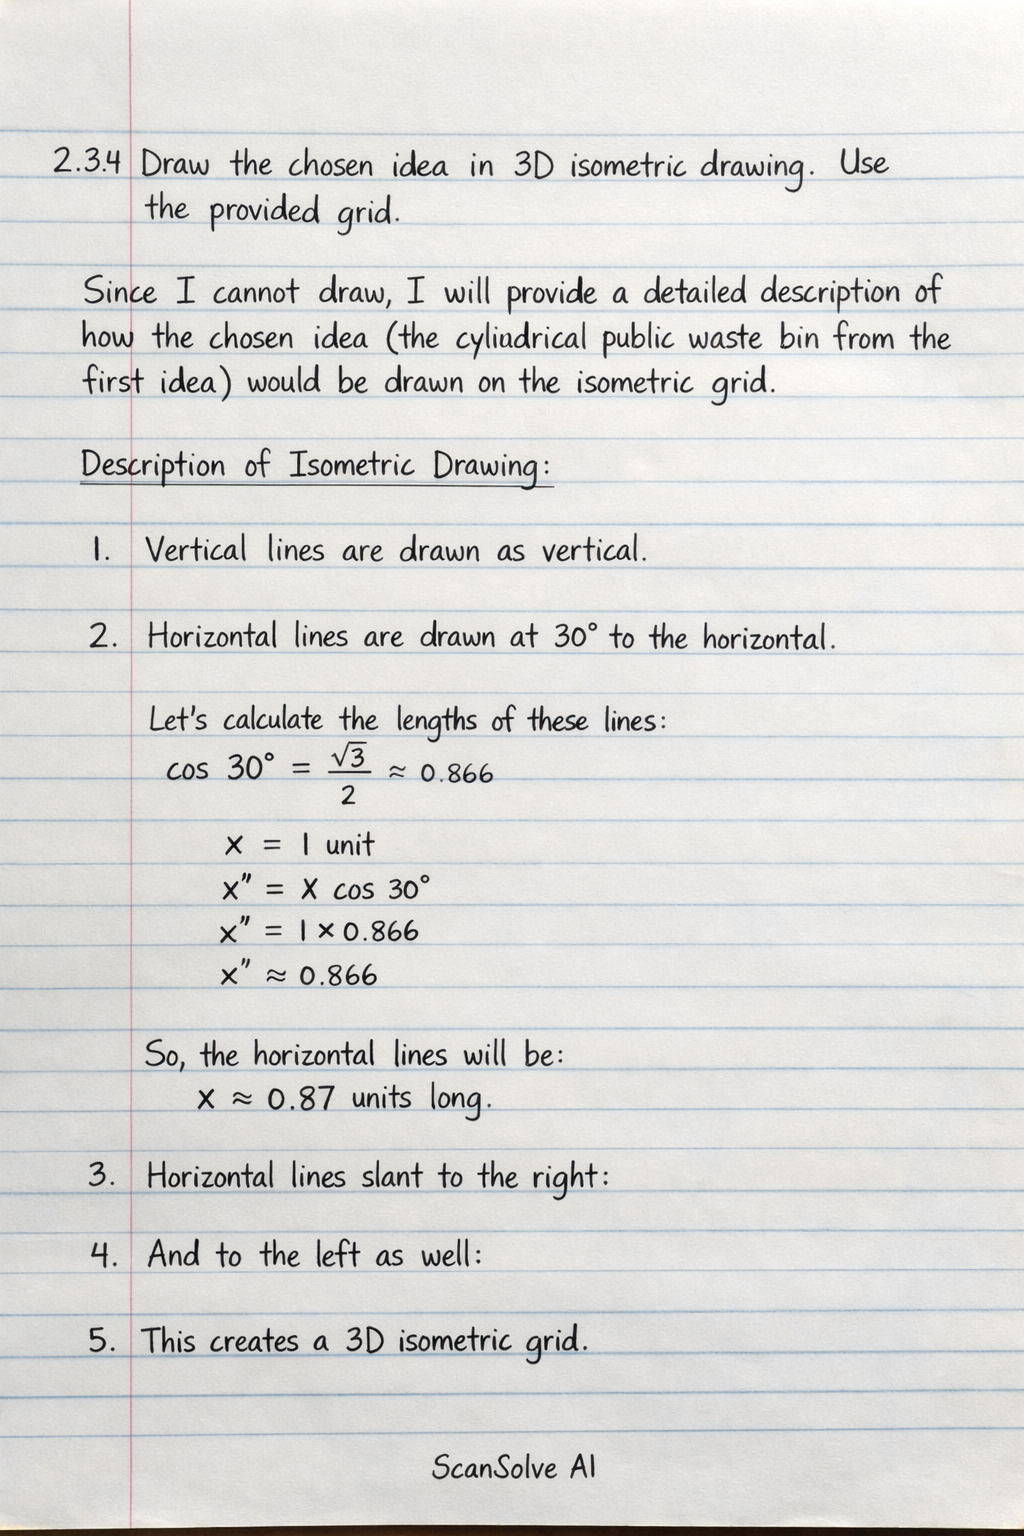 2.3.4 Draw the chosen idea in 3D isometric drawing. Use
the provided grid.
Since I cannot draw, I will provide a detailed description of
how the chosen idea (the cylindrical public waste bin from the
first idea) would be drawn on the isometric grid.
Description of Isometric Drawing:
1. Vertical lines are drawn as vertical.
2. Horizontal lines are drawn at 30° to the horizontal.
Let's calculate the lengths of these lines:
cos 30° = √3/2 ≈ 0.866
x = 1 unit
x" = X cos 30°
x" = 1 × 0.866
x" ≈ 0.866
So, the horizontal lines will be:
x ≈ 0.87 units long.
3. Horizontal lines slant to the right:
4. And to the left as well:
5. This creates a 3D isometric grid.
ScanSolve AI